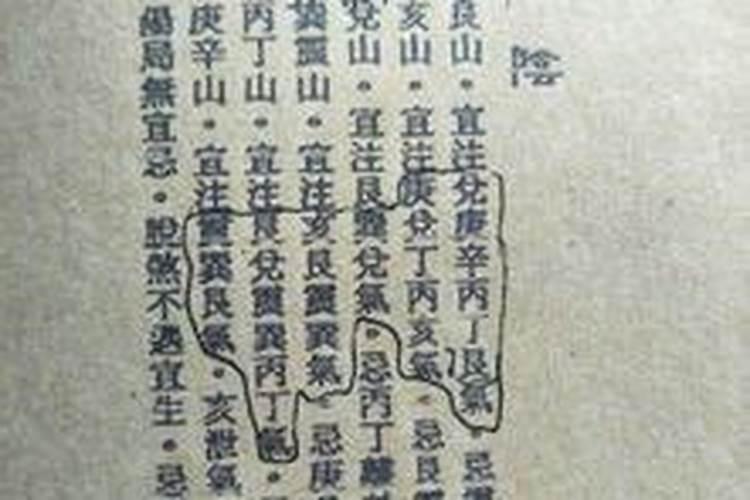 陰
艮山。宜注兌庚辛丙丁艮氣。忌
亥山。宜注庚兌丁丙亥氣。忌艮
兌山。宜注艮巽兌氣。忌丙丁離
巽震山。宜注亥艮震巽氣。忌庚
丙丁山。宜注艮兌震巽丙丁氣。
庚辛山。宜注震巽艮氣。亥泄氣
局無宜忌。脫煞不遇宜生。忌